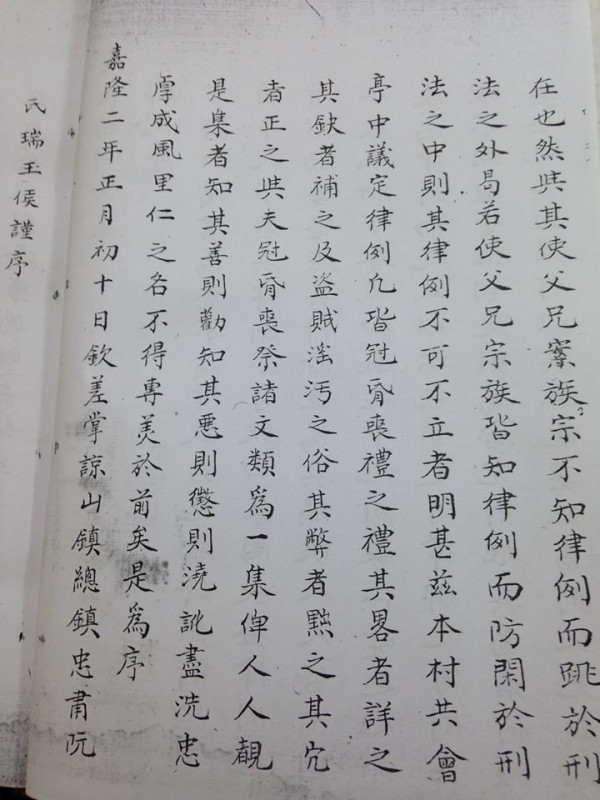 在也然與其使父兄寮族宗不知律例而跳於刑
法之外曷若使父兄宗族皆知律例而防閑於刑
法之中則其律例不可不立者明甚兹本村共會
亭中議定律例凢皆冠昏喪禮之禮其畧者詳之
其缺者補之及盗賊滛汚之俗其弊者黜之其宂
者正之與夫冠昏喪祭諸文類爲一集俾人人覩
是集者知其善則勸知其悪則懲則澆訛盡洗忠
厚成風里仁之名不得專羙於前矣是爲序
嘉隆二年正月初十日欽差掌諒山鎮總鎮忠肅阮
氏瑞玉侯謹序